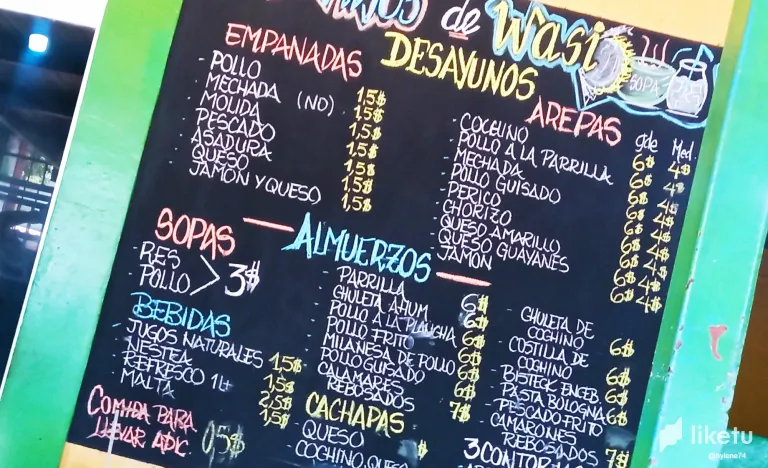 de Wasi
DESAYUNOS
EMPANADAS
- POLLO 1,5$
- MECHADA (NO) 1,5$
- MOLIDA 1,5$
- PESCADO 1,5$
- ASADURA 1,5$
- QUESO 1,5$
- JAMON Y QUESO 1,5$
SOPA
AREPAS gde Med.
- COCHINO 6$ 4$
- POLLO A LA PARRILLA 6$ 4$
- MECHADA 6$ 4$
- POLLO GUISADO 6$ 4$
- PERICO 6$ 4$
- CHORIZO 6$ 4$
- QUESO AMARILLO 6$ 4$
- QUESO GUAYANES 6$ 4$
- JAMON 6$ 4$
SOPAS
- RES
- POLLO > 3$
BEBIDAS
- JUGOS NATURALES 1,5$
- NESTEA 1,5$
- REFRESCO 1Lt 2,5$
- MALTA 1,5$
COMIDA PARA
LLEVAR ADIC. 0,5$
ALMUERZOS
- PARRILLA 6$
- CHULETA AHUM 6$
- POLLO A LA PLANCHA 6$
- POLLO FRITO 6$
- MILANESA DE POLLO 6$
- POLLO GUISADO
- CALAMARES
REBOSADOS 7$
- CHULETA DE
COCHINO 6$
- COSTILLA DE
COCHINO 6$
- BISTECK ENCEB.
- PASTA BOLOGNA 6$
- PESCADO FRITO
- CAMARONES
REBOSADOS 7$
CACHAPAS
- QUESO $
- COCHINO, QUE
liketu